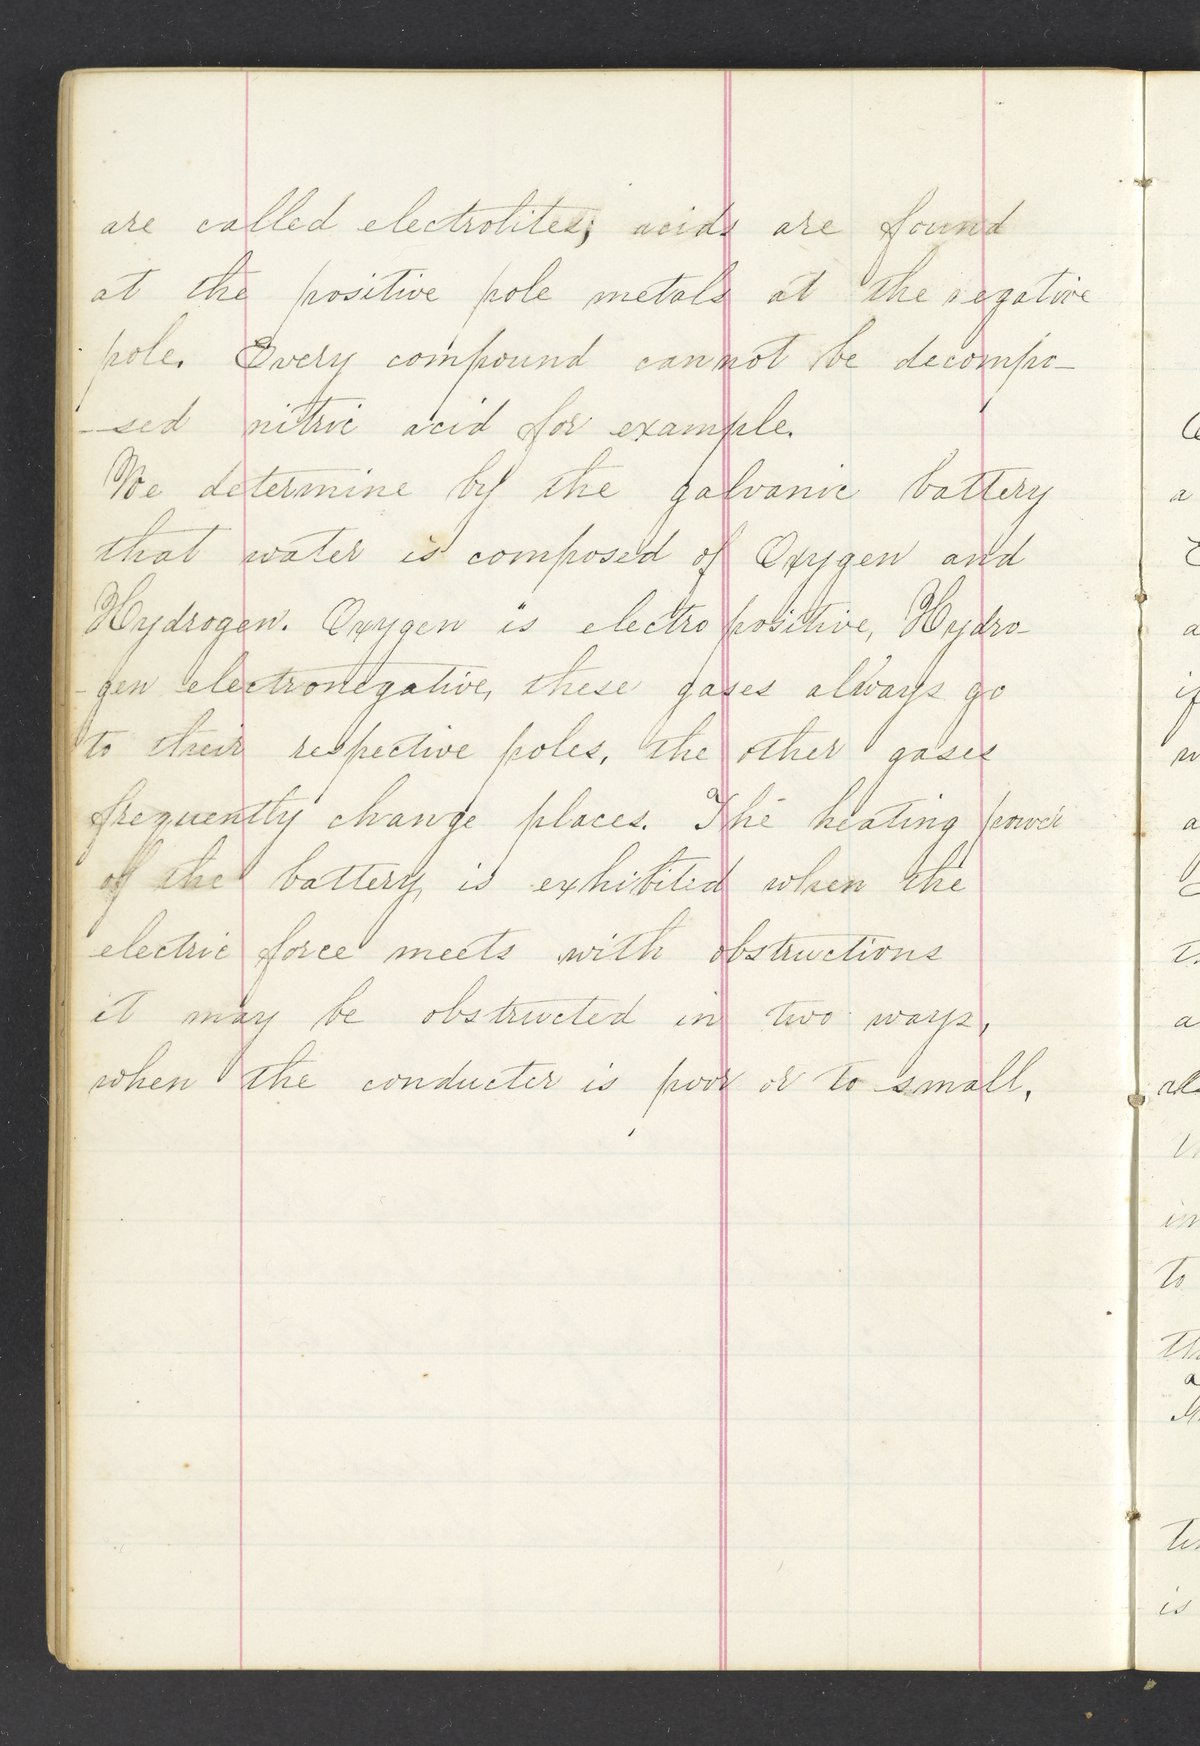 are called electrolites; acids are found
at the positive pole metals at the negative
pole. Every compound cannot be decompo-
-sed nitric acid for example.
We determine by the galvanic battery
that water is composed of Oxygen and
Hydrogen. Oxygen is electro positive, Hydro-
-gen electronegative, these gases always go
to their respective poles, the other gases
frequently change places. The heating power
of the battery is exhibited when the
electric force meets with obstructions
it may be obstructed in two ways,
when the conducter is poor or to small,